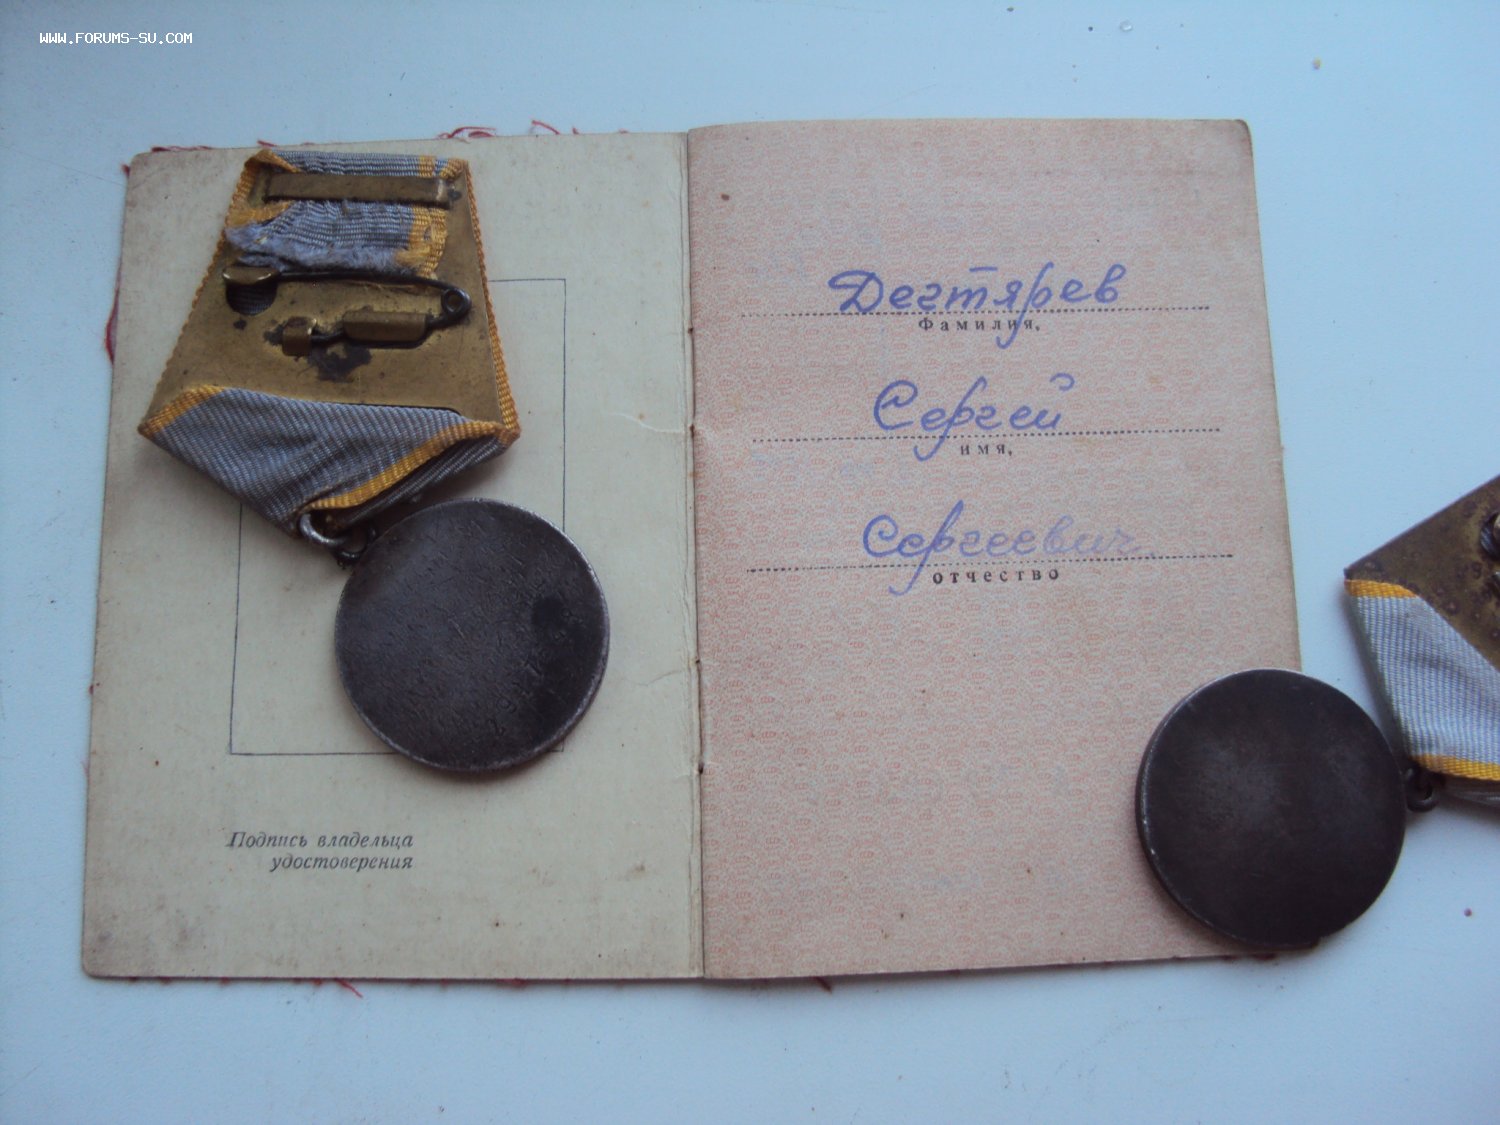 WWW.FORUMS-SU.COM
Дегтярев
Фамилия,
Сергей
имя,
Сергеевич
отчество
Подпись владельца
удостоверения